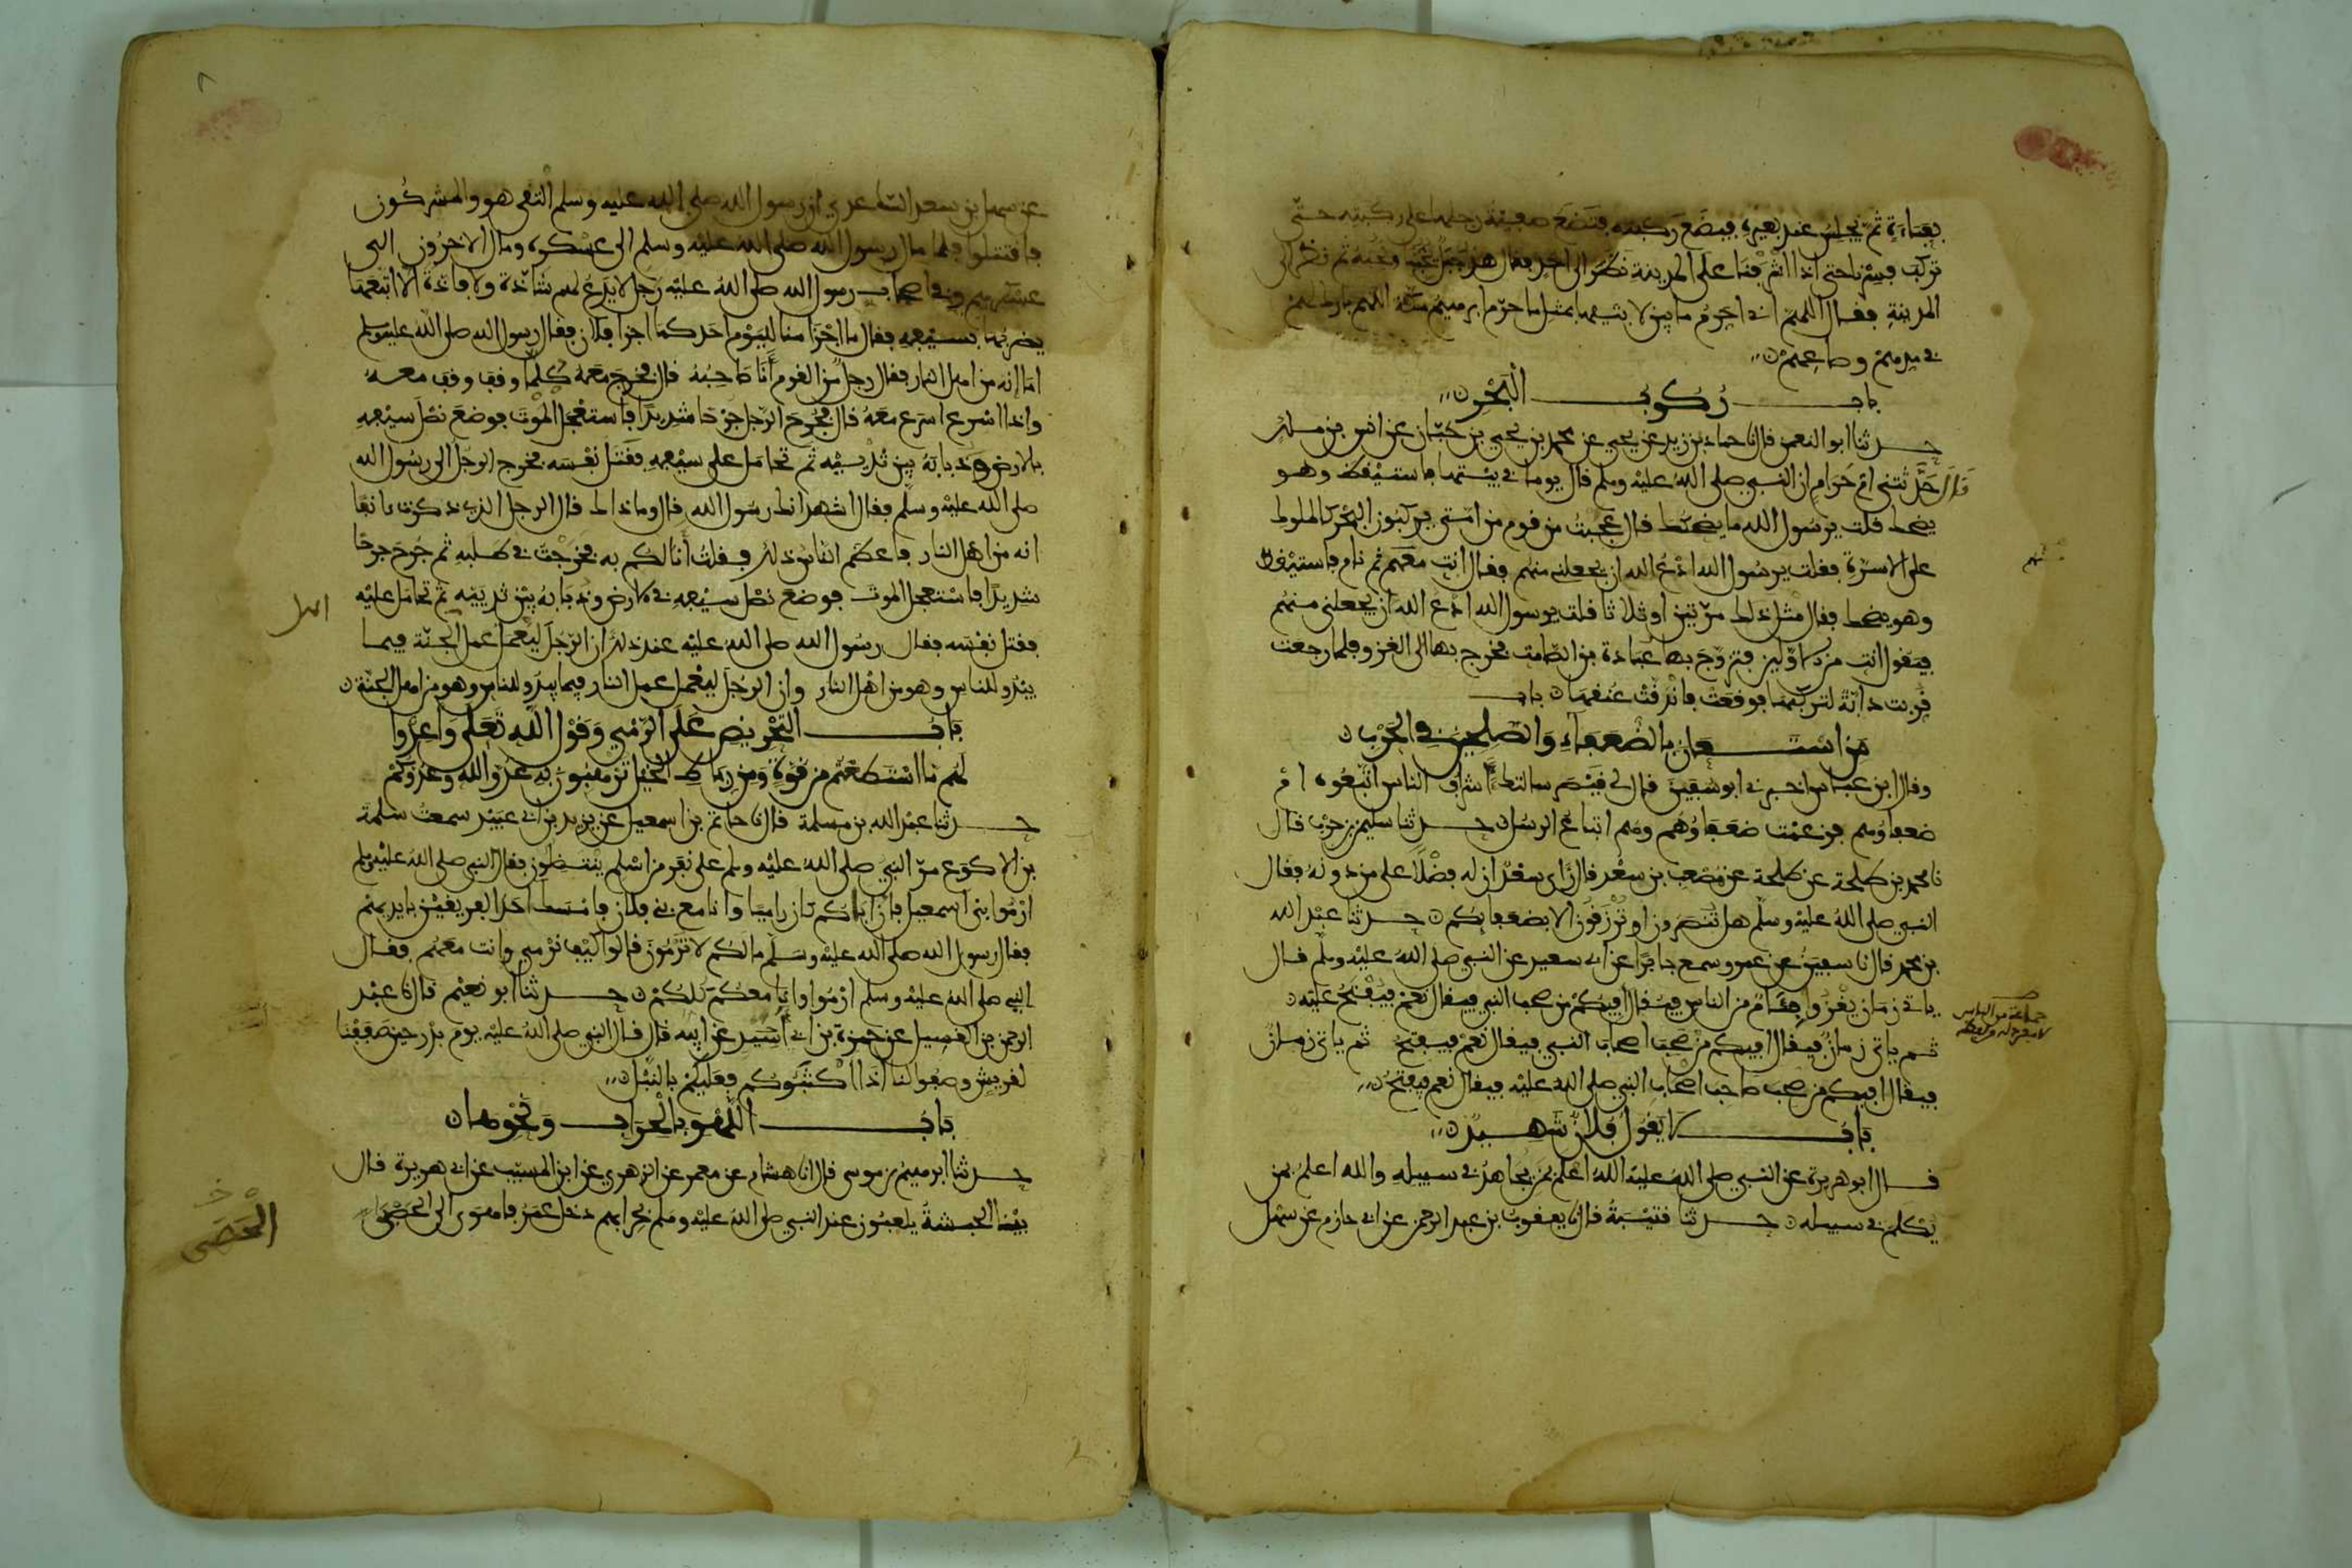 بعباءة ثم يجلس عند بعيره فيضع ركبته فتضع صفية رجلها على ركبته حتى
تركب فسرنا حتى اذا اشرفنا على المدينة نظر الى احد فقال هذا جبل يحبنا ونحبه ثم نظر الى
المدينة فقال اللهم اني احرم ما بين لابتيها بمثل ما حرم ابرهيم مكة اللهم بارك لهم
في مدهم وصاعهم
باب ركوب البحر
حدثنا ابو النعمن قال نا حماد بن زيد عن يحيى عن محمد بن يحيى بن حبان عن انس بن ملك
قال حدثتني ام حرام ان النبي صلى الله عليه وسلم قال يوما في بيتها فاستيقظ وهو
يضحك قلت يرسول الله ما يضحكك قال عجبت من قوم من امتي يركبون البحر كالملوك
على الاسرة فقلت يرسول الله ادع الله ان يجعلني منهم فقال انت معهم ثم نام فاستيقظ
وهو يضحك فقال مثل ذلك مرتين او ثلاثا قلت يرسول الله ادع الله ان يجعلني منهم
فيقول انت من الاولين فتزوج بها عبادة بن الصامت فخرج بها الى الغزو فلما رجعت
قربت دابة لتركبها فوقعت فاندقت عنقها باب
من استعان بالضعفاء والصلحين في الحرب
وقال ابن عباس اخبرني ابو سفين قال لي قيصر سالتك اشراف الناس اتبعوه ام
ضعفاؤهم فزعمت ضعفاؤهم وهم اتباع الرسل حدثنا سليمن بن حرب قال
نا محمد بن طلحة عن طلحة عن مصعب بن سعد قال راى سعد ان له فضلا على من دونه فقال
النبي صلى الله عليه وسلم هل تنصرون او ترزقون الا بضعفايكم حدثنا عبد الله
بن محمد قال نا سفين عن عمرو سمع جابرا عن ابي سعيد عن النبي صلى الله عليه وسلم قال
ياتي زمان يغزوا فئام من الناس فيقال افيكم من صحب النبي فيقال نعم فيفتح عليه
ثم ياتي زمان فيقال افيكم من صحب اصحاب النبي فيقال نعم فيفتح ثم ياتي زمان
فيقال افيكم من صحب صاحب اصحاب النبي صلى الله عليه فيقال نعم فيفتح
باب لا يقول فلان شهيد
قال ابو هريرة عن النبي صلى الله عليه الله اعلم بمن يجاهد في سبيله والله اعلم بمن
يكلم في سبيله حدثنا قتيبة قال نا يعقوب بن عبد الرحمن عن ابي حازم عن سهل
منهم
جماعة من الناس
عن سهل بن سعد الساعدي ان رسول الله صلى الله عليه وسلم التقى هو والمشركون
فاقتتلوا فلما مال رسول الله صلى الله عليه وسلم الى عسكره ومال الاخرون الى
عسكرهم وفي اصحاب رسول الله صلى الله عليه رجل لا يدع لهم شاذة ولا فاذة الا اتبعها
يضربها بسيفه فقال ما اجزا منا اليوم احد كما اجزا فلان فقال رسول الله صلى الله عليه وسلم
اما انه من اهل النار فقال رجل من القوم انا صاحبه قال فخرج معه كلما وقف وقف معه
واذا اسرع اسرع معه قال فجرح الرجل جرحا شديدا فاستعجل الموت فوضع نصل سيفه
بالارض وذبابه بين ثدييه ثم تحامل على سيفه فقتل نفسه فخرج الرجل الى رسول الله
صلى الله عليه وسلم فقال اشهد انك رسول الله قال وما ذاك قال الرجل الذي ذكرت انفا
انه من اهل النار فاعظم الناس ذلك فقلت انا لكم به فخرجت في طلبه ثم جرح جرحا
شديدا فاستعجل الموت فوضع نصل سيفه في الارض وذبابه بين ثدييه ثم تحامل عليه
فقتل نفسه فقال رسول الله صلى الله عليه عند ذلك ان الرجل ليعمل عمل الجنة فيما
يبدو للناس وهو من اهل النار وان الرجل ليعمل عمل النار فيما يبدو للناس وهو من اهل الجنة
باب التحريض على الرمي وقول الله تعلى واعدوا
لهم ما استطعتم من قوة ومن رباط الخيل ترهبون به عدو الله وعدوكم
حدثنا عبد الله بن مسلمة قال نا حاتم بن اسمعيل عن يزيد بن ابي عبيد سمعت سلمة
بن الاكوع مر النبي صلى الله عليه وسلم على نفر من اسلم ينتضلون فقال النبي صلى الله عليه وسلم
ارموا بني اسمعيل فان اباكم كان راميا وانا مع بني فلان فامسك احد الفريقين بايديهم
فقال رسول الله صلى الله عليه وسلم مالكم لا ترمون قالوا كيف نرمي وانت معهم فقال
النبي صلى الله عليه وسلم ارموا وانا معكم كلكم حدثنا ابو نعيم قال نا عبد
الرحمن بن الغسيل عن حمزة بن ابي اسيد عن ابيه قال قال النبي صلى الله عليه يوم بدر حين صففنا
لقريش وصفوا لنا اذا اكثبوكم فعليكم بالنبل
باب اللهو بالحراب ونحوها
حدثنا ابرهيم بن موسى قال انا هشام عن معمر عن الزهري عن ابن المسيب عن ابي هريرة قال
بينا الحبشة يلعبون عند النبي صلى الله عليه وسلم بحرابهم دخل عمر فاهوى الى الحصى
اهل
الحصى